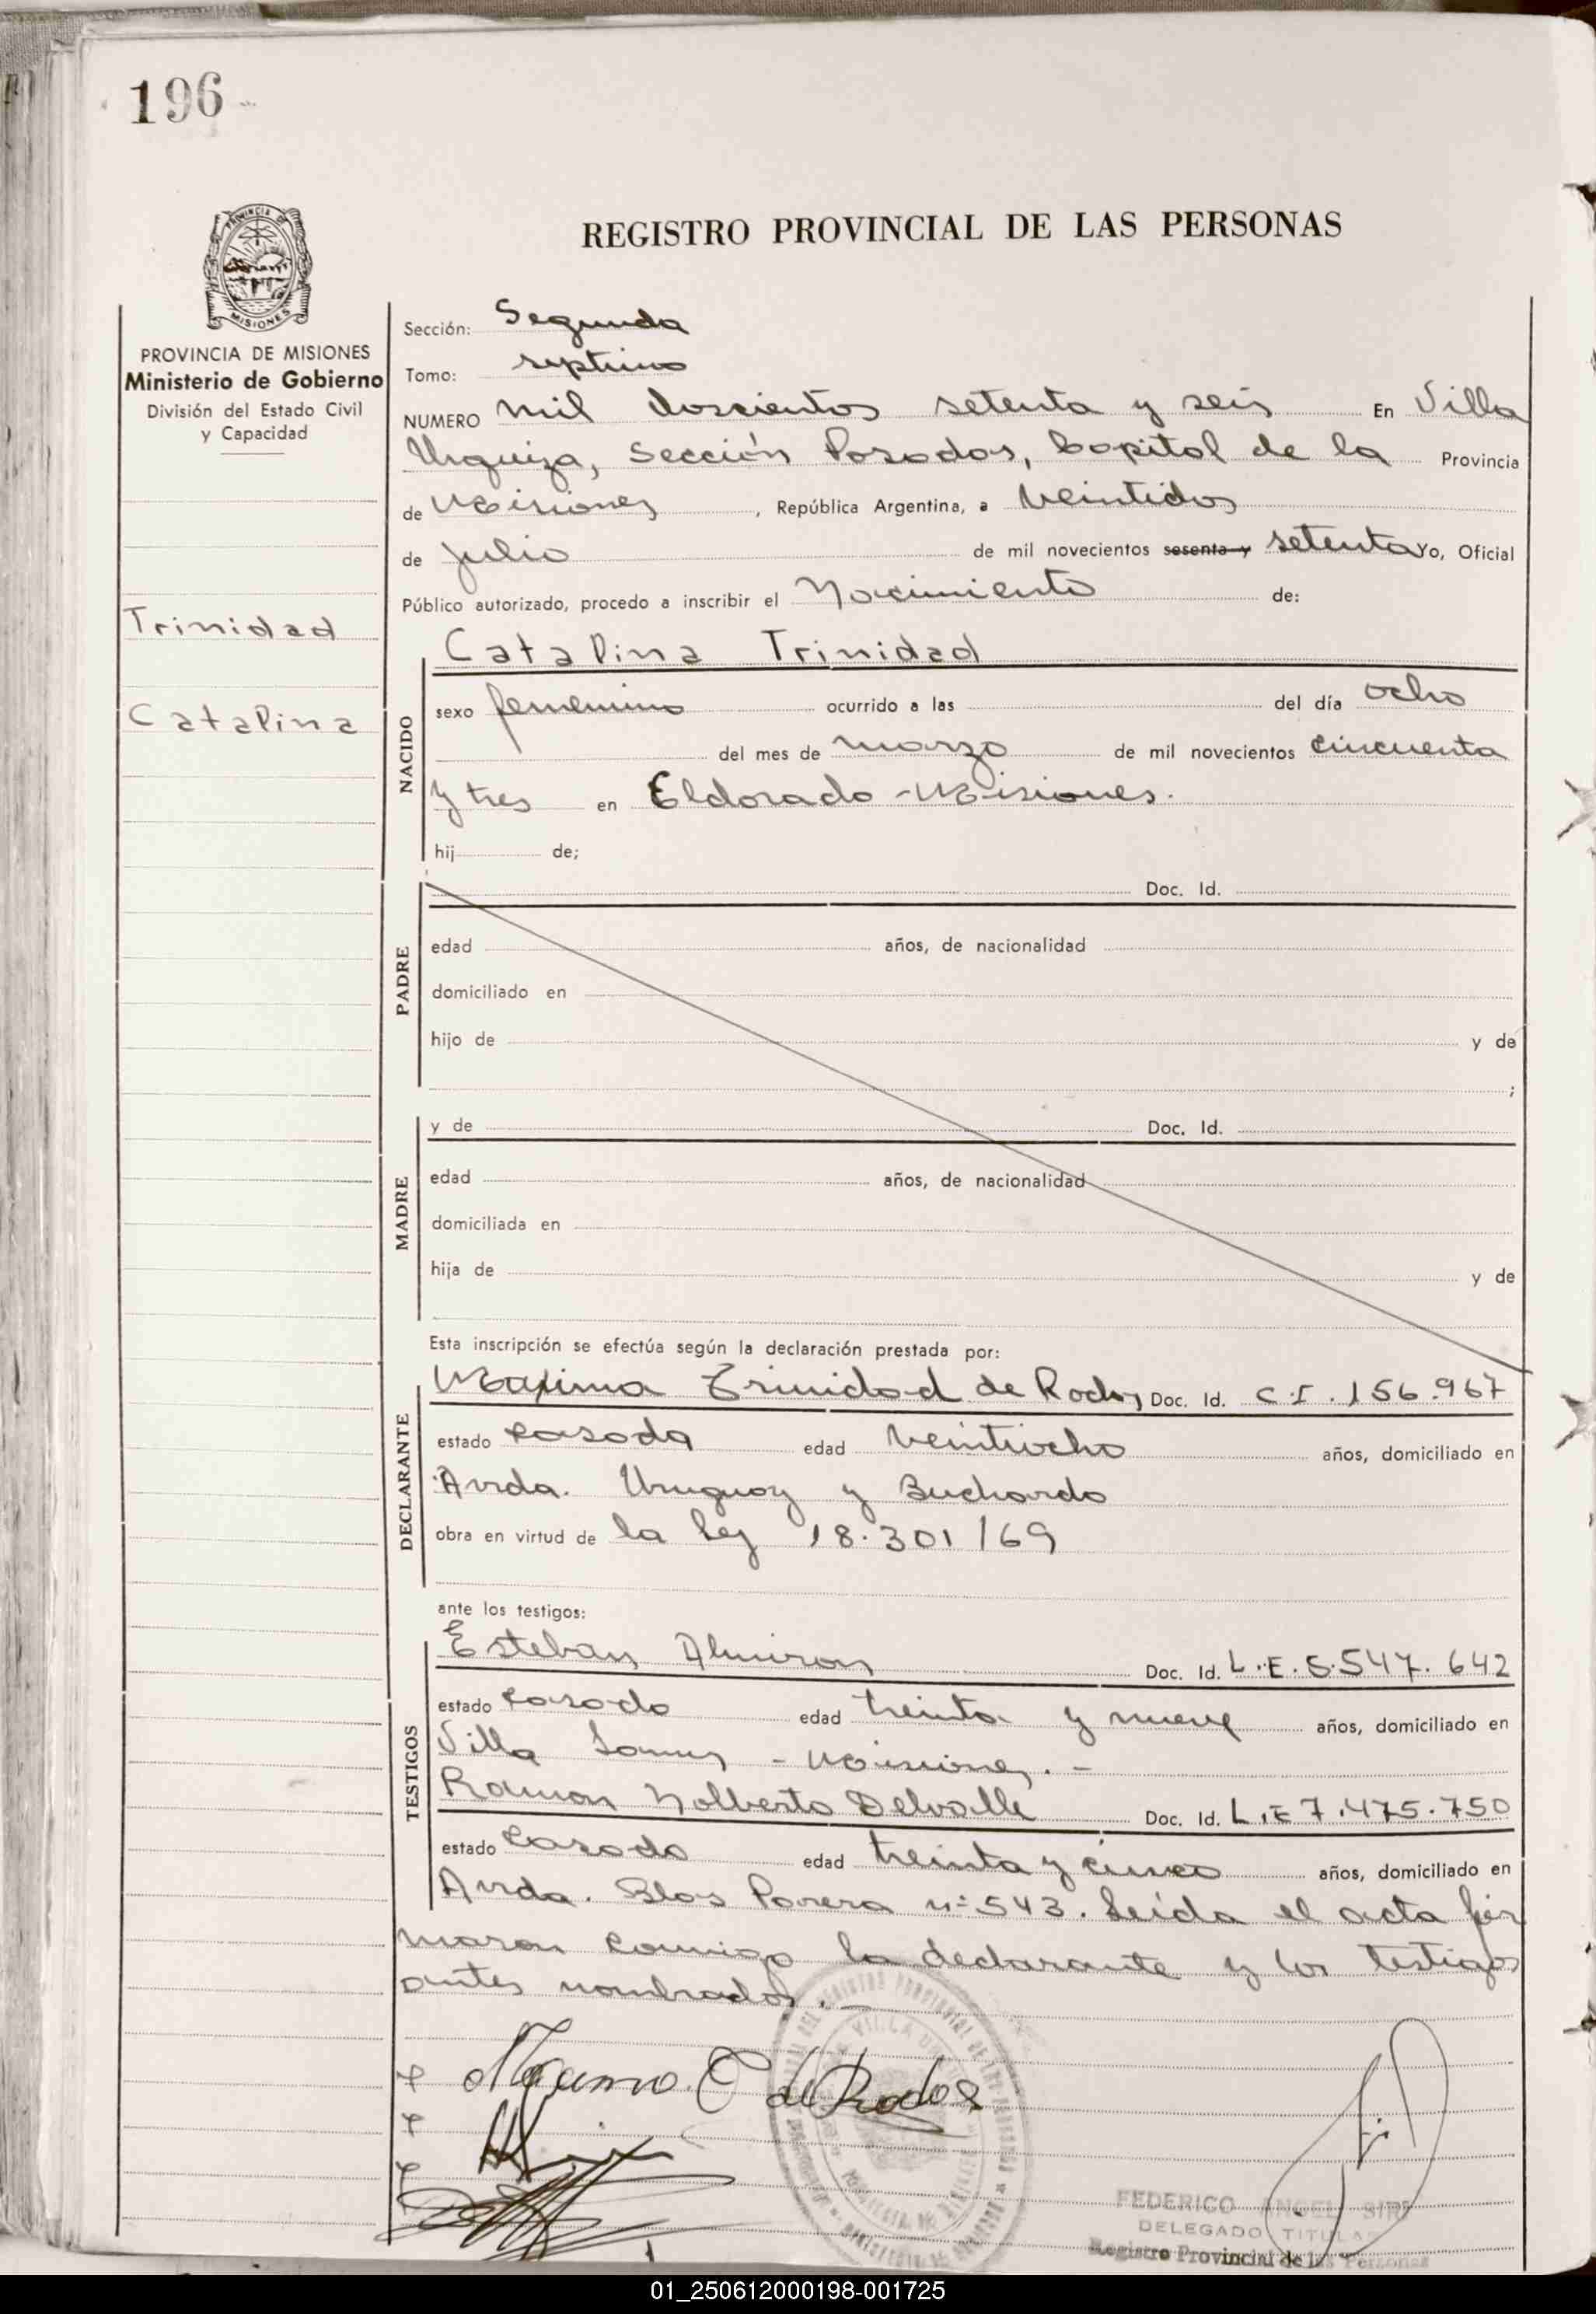 196
REGISTRO PROVINCIAL DE LAS PERSONAS
PROVINCIA DE
MISIONES
PROVINCIA DE MISIONES
Ministerio de Gobierno
División del Estado Civil
y Capacidad
Trinidad
Catalina
Sección: Segunda
Tomo: septimo
NUMERO mil doscientos setenta y seis En Villa
Urquiza, Sección Posadas, Capital de la Provincia
de Misiones, República Argentina, a veintidos
de julio de mil novecientos sesenta y setenta Yo, Oficial
Público autorizado, procedo a inscribir el Nacimiento de:
Catalina Trinidad
NACIDO
sexo femenino ocurrido a las del día ocho
del mes de marzo de mil novecientos cincuenta
y tres en Eldorado - Misiones.
hij de;
PADRE
Doc. Id.
edad años, de nacionalidad
domiciliado en
hijo de y de
;
MADRE
y de Doc. Id.
edad años, de nacionalidad
domiciliada en
hija de y de
Esta inscripción se efectúa según la declaración prestada por:
DECLARANTE
Maxima Trinidad de Doc. Id. C.I. 156.967
estado casada edad veintiocho años, domiciliado en
Avda. Uruguay y Buchardo
obra en virtud de la ley 18.301/69
ante los testigos:
TESTIGOS
Esteban Almiron Doc. Id. L.E. 5.547.642
estado casado edad treinta y nueve años, domiciliado en
Villa Lanus - Misiones. -
Ramon Nolberto Delvalle Doc. Id. L.E 7.475.750
estado casado edad treinta y cinco años, domiciliado en
Avda. Blas Parera nº 543. Leída el acta fir
maron conmigo la declarante y los testigos
antes nombrados. -
FEDERICO ANGEL SIRI
DELEGADO TITULAR
Registro Provincial de las Personas
01_250612000198-001725